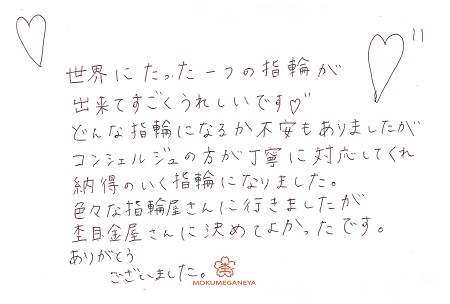 世界にたった一つの指輪が
出来てすごくうれしいです♡"
どんな指輪になるか不安もありましたが
コンシェルジュの方が丁寧に対応してくれ
納得のいく指輪になりました。
色々な指輪屋さんに行きましたが
杢目金屋さんに決めてよかったです。
ありがとう
ございました。
MOKUMEGANEYA